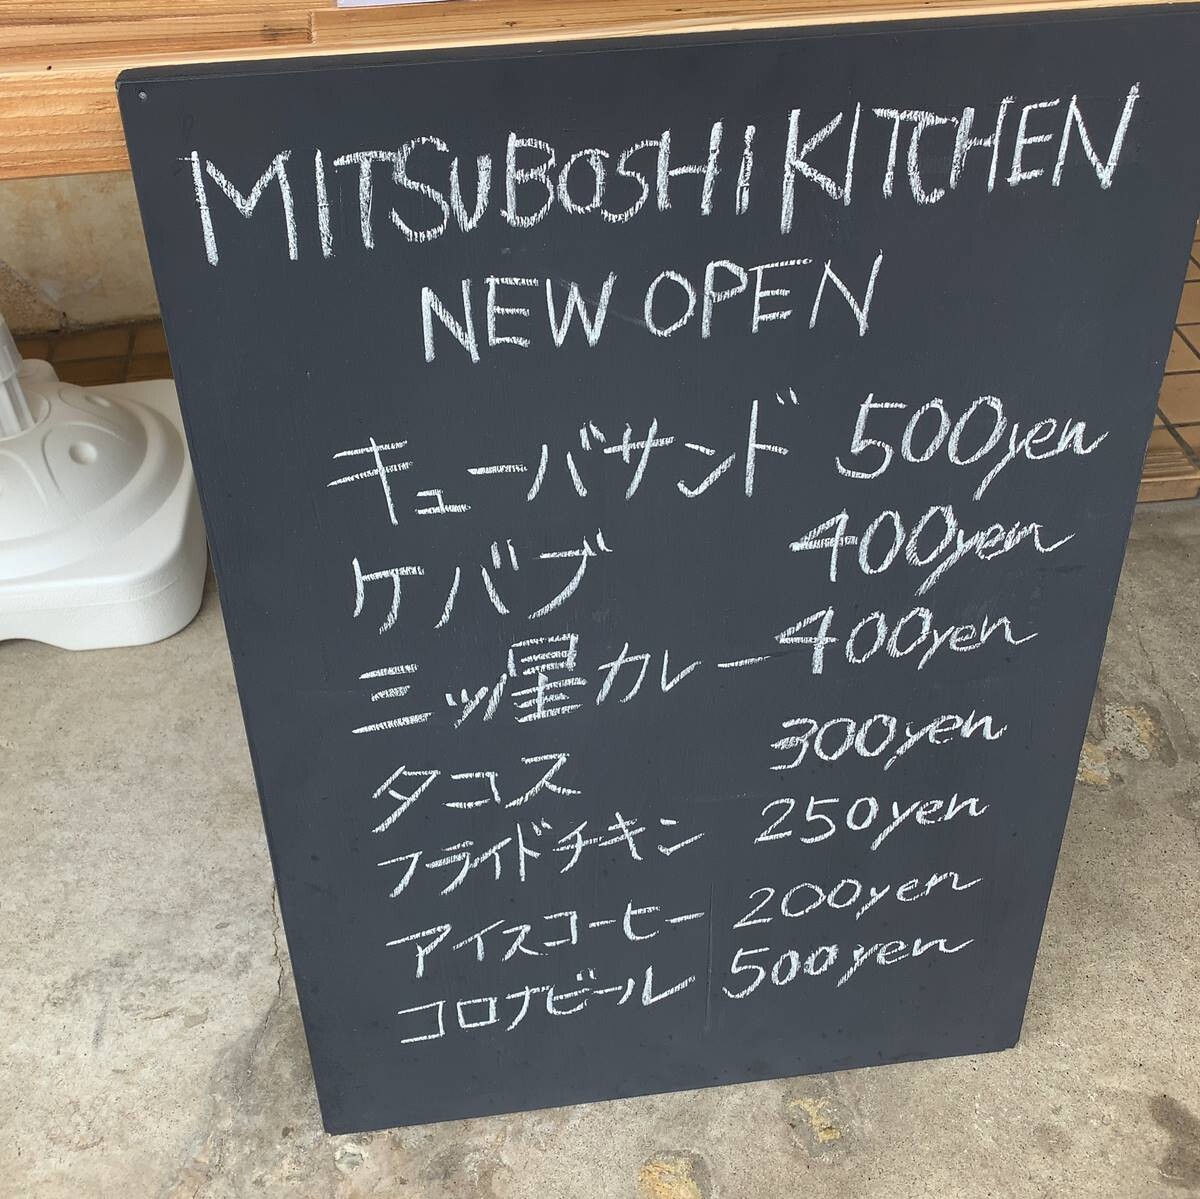 MITSUBOSHI KITCHEN
NEW OPEN
キューバサンド 500yen
ケバブ 400yen
三ッ星カレー 400yen
タコス 300yen
フライドチキン 250yen
アイスコーヒー 200yen
コロナビール 500yen